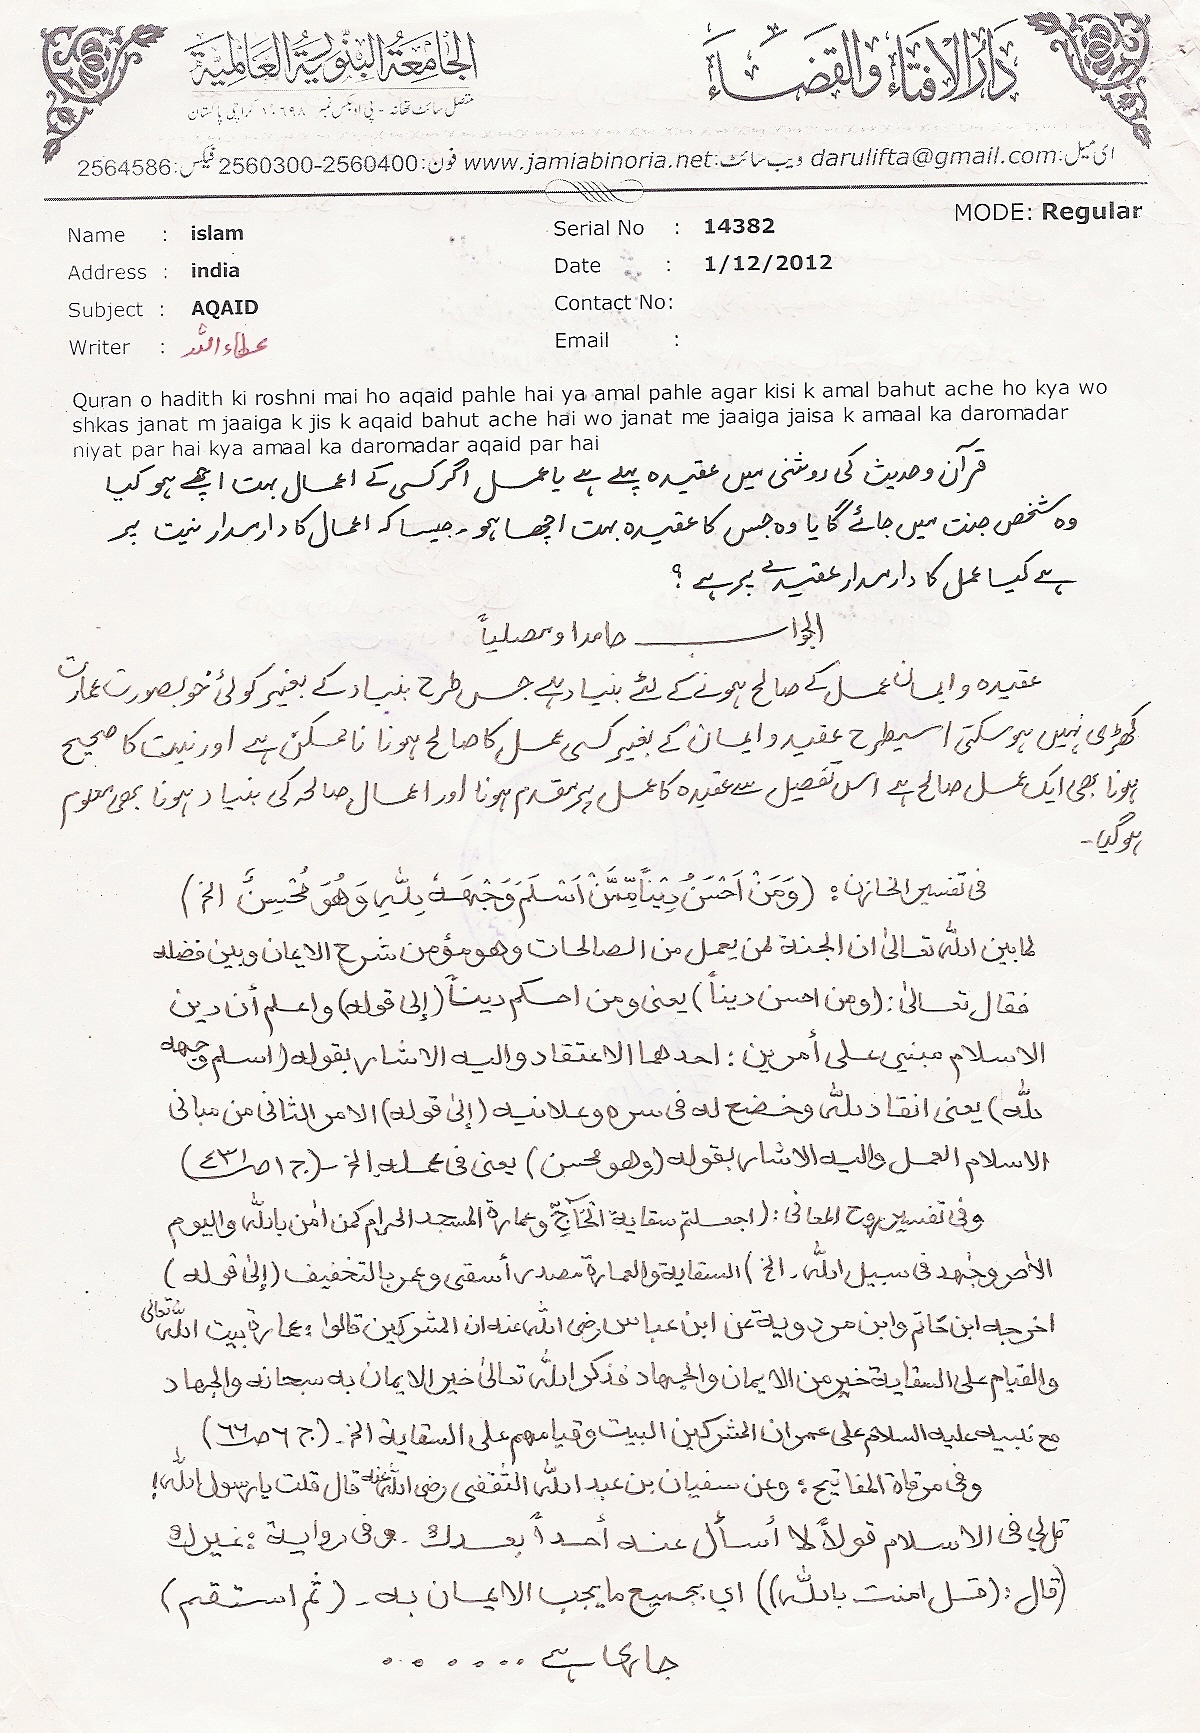 دَارُ الْاِفْتَاءِ وَالْقَضَاءِ
الجَامِعَةُ البِنُّورِيَّة العَالَمِيَّة
متصل سائٹ تھانہ - پی او بکس نمبر ۱۰۶۹۸ کراچی پاکستان
ای میل: darulifta@gmail.com ویب سائٹ: www.jamiabinoria.net فون: 2560300-2560400 فیکس: 2564586
MODE: Regular
Name : islam
Serial No : 14382
Address : india
Date : 1/12/2012
Subject : AQAID
Contact No:
Writer : عطاء اللہ
Email :
Quran o hadith ki roshni mai ho aqaid pahle hai ya amal pahle agar kisi k amal bahut ache ho kya wo
shkas janat m jaaiga k jis k aqaid bahut ache hai wo janat me jaaiga jaisa k amaal ka daromadar
niyat par hai kya amaal ka daromadar aqaid par hai
قرآن وحدیث کی روشنی میں عقیدہ پہلے ہے یا عمل اگر کسی کے اعمال بہت اچھے ہو کیا
وہ شخص جنت میں جائے گا یا وہ جس کا عقیدہ بہت اچھا ہو۔ جیسا کہ اعمال کا دارمدار نیت پر
ہے کیا عمل کا دارمدار عقیدے پر ہے ؟
الجواب حامدا ومصلیاً
عقیدہ و ایمان عمل کے صالح ہونے کے لئے بنیاد ہے جس طرح بنیاد کے بغیر کوئی خوبصورت عمارت
کھڑی نہیں ہوسکتی اسیطرح عقیدہ و ایمان کے بغیر کسی عمل کا صالح ہونا ناممکن ہے اور نیت کا صحیح
ہونا بھی ایک عمل صالح ہے اس تفصیل سے عقیدہ کا عمل پر مقدم ہونا اور اعمال صالحہ کی بنیاد ہونا بھی معلوم
ہوگیا۔
فی تفسیر الخازن: (وَمَنْ اَحْسَنُ دِیْناً مِّمَّنْ اَسْلَمَ وَجْهَهٗ لِلّٰهِ وَهُوَ مُحْسِنٌ الخ)
لما بین اللہ تعالیٰ ان الجنة لمن یعمل من الصالحات وهو مؤمن شرح الایمان وبین فضله
فقال تعالیٰ: (ومن احسن دیناً) یعنی ومن احکم دیناً (إلی قوله) واعلم أن دین
الاسلام مبنی علی أمرین: احدهما الاعتقاد والیه الاشارۃ بقوله (اسلم وجهه
للہ) یعنی انقاد للہ وخضع له فی سره وعلانیه (إلی قوله) الامر الثانی من مبانی
الاسلام العمل والیه الاشارۃ بقوله (وهو محسن) یعنی فی عمله الخ - (ج ۱ ص ٤٣١)
وفی تفسیر روح المعانی: (اجعلتم سقایة الحَآجِّ وعمارة المسجد الحرام کمن اٰمن باللہ والیوم
الاٰخر وجٰهد فی سبیل اللہ۔ الخ) السقایة والعمارة مصدر أسقی وعمر بالتخفیف (إلی قوله)
اخرجه ابن حاتم وابن مردویة عن ابن عباس رضی اللہ عنه ان المشرکین قالوا: عمارة بیت اللہ تعالیٰ
والقیام علی السقایة خیر من الایمان والجهاد فذکر اللہ تعالیٰ خیر الایمان به سبحانه والجهاد
مع نبیه علیه السلام علی عمران المشرکین البیت وقیامهم علی السقایة الخ۔ (ج ۶ ص ٦٦)
وفی مرقاة المفاتیح: وعن سفیان بن عبد اللہ الثقفی رضی اللہ عنه قال قلت یا رسول اللہ!
قل لی فی الاسلام قولاً لا أسأل عنه أحداً بعدك ۔ وفی روایة: غیرك
(قال: (قل امنت باللہ)) ای بجمیع ما یجب الایمان به۔ (ثم استقم)
جاری ہے ......